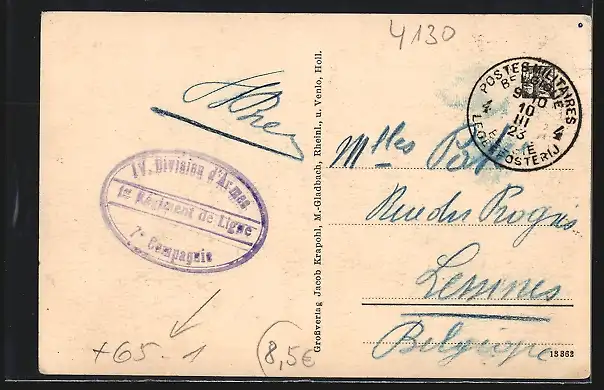 4130
POSTES MILITAIRES
BELGIQUE
9-10
10
III
23
4 4
LEGERPOSTERIJ
IV. Division d'Armée
1er Régiment de Ligne
7e Compagnie
Großverlag Jacob Krapohl, M.-Gladbach, Rheinl., u. Venlo, Holl.
Mlles
Rue du Progrès
Lessines
Belgique
13363
+65-1
8,5€